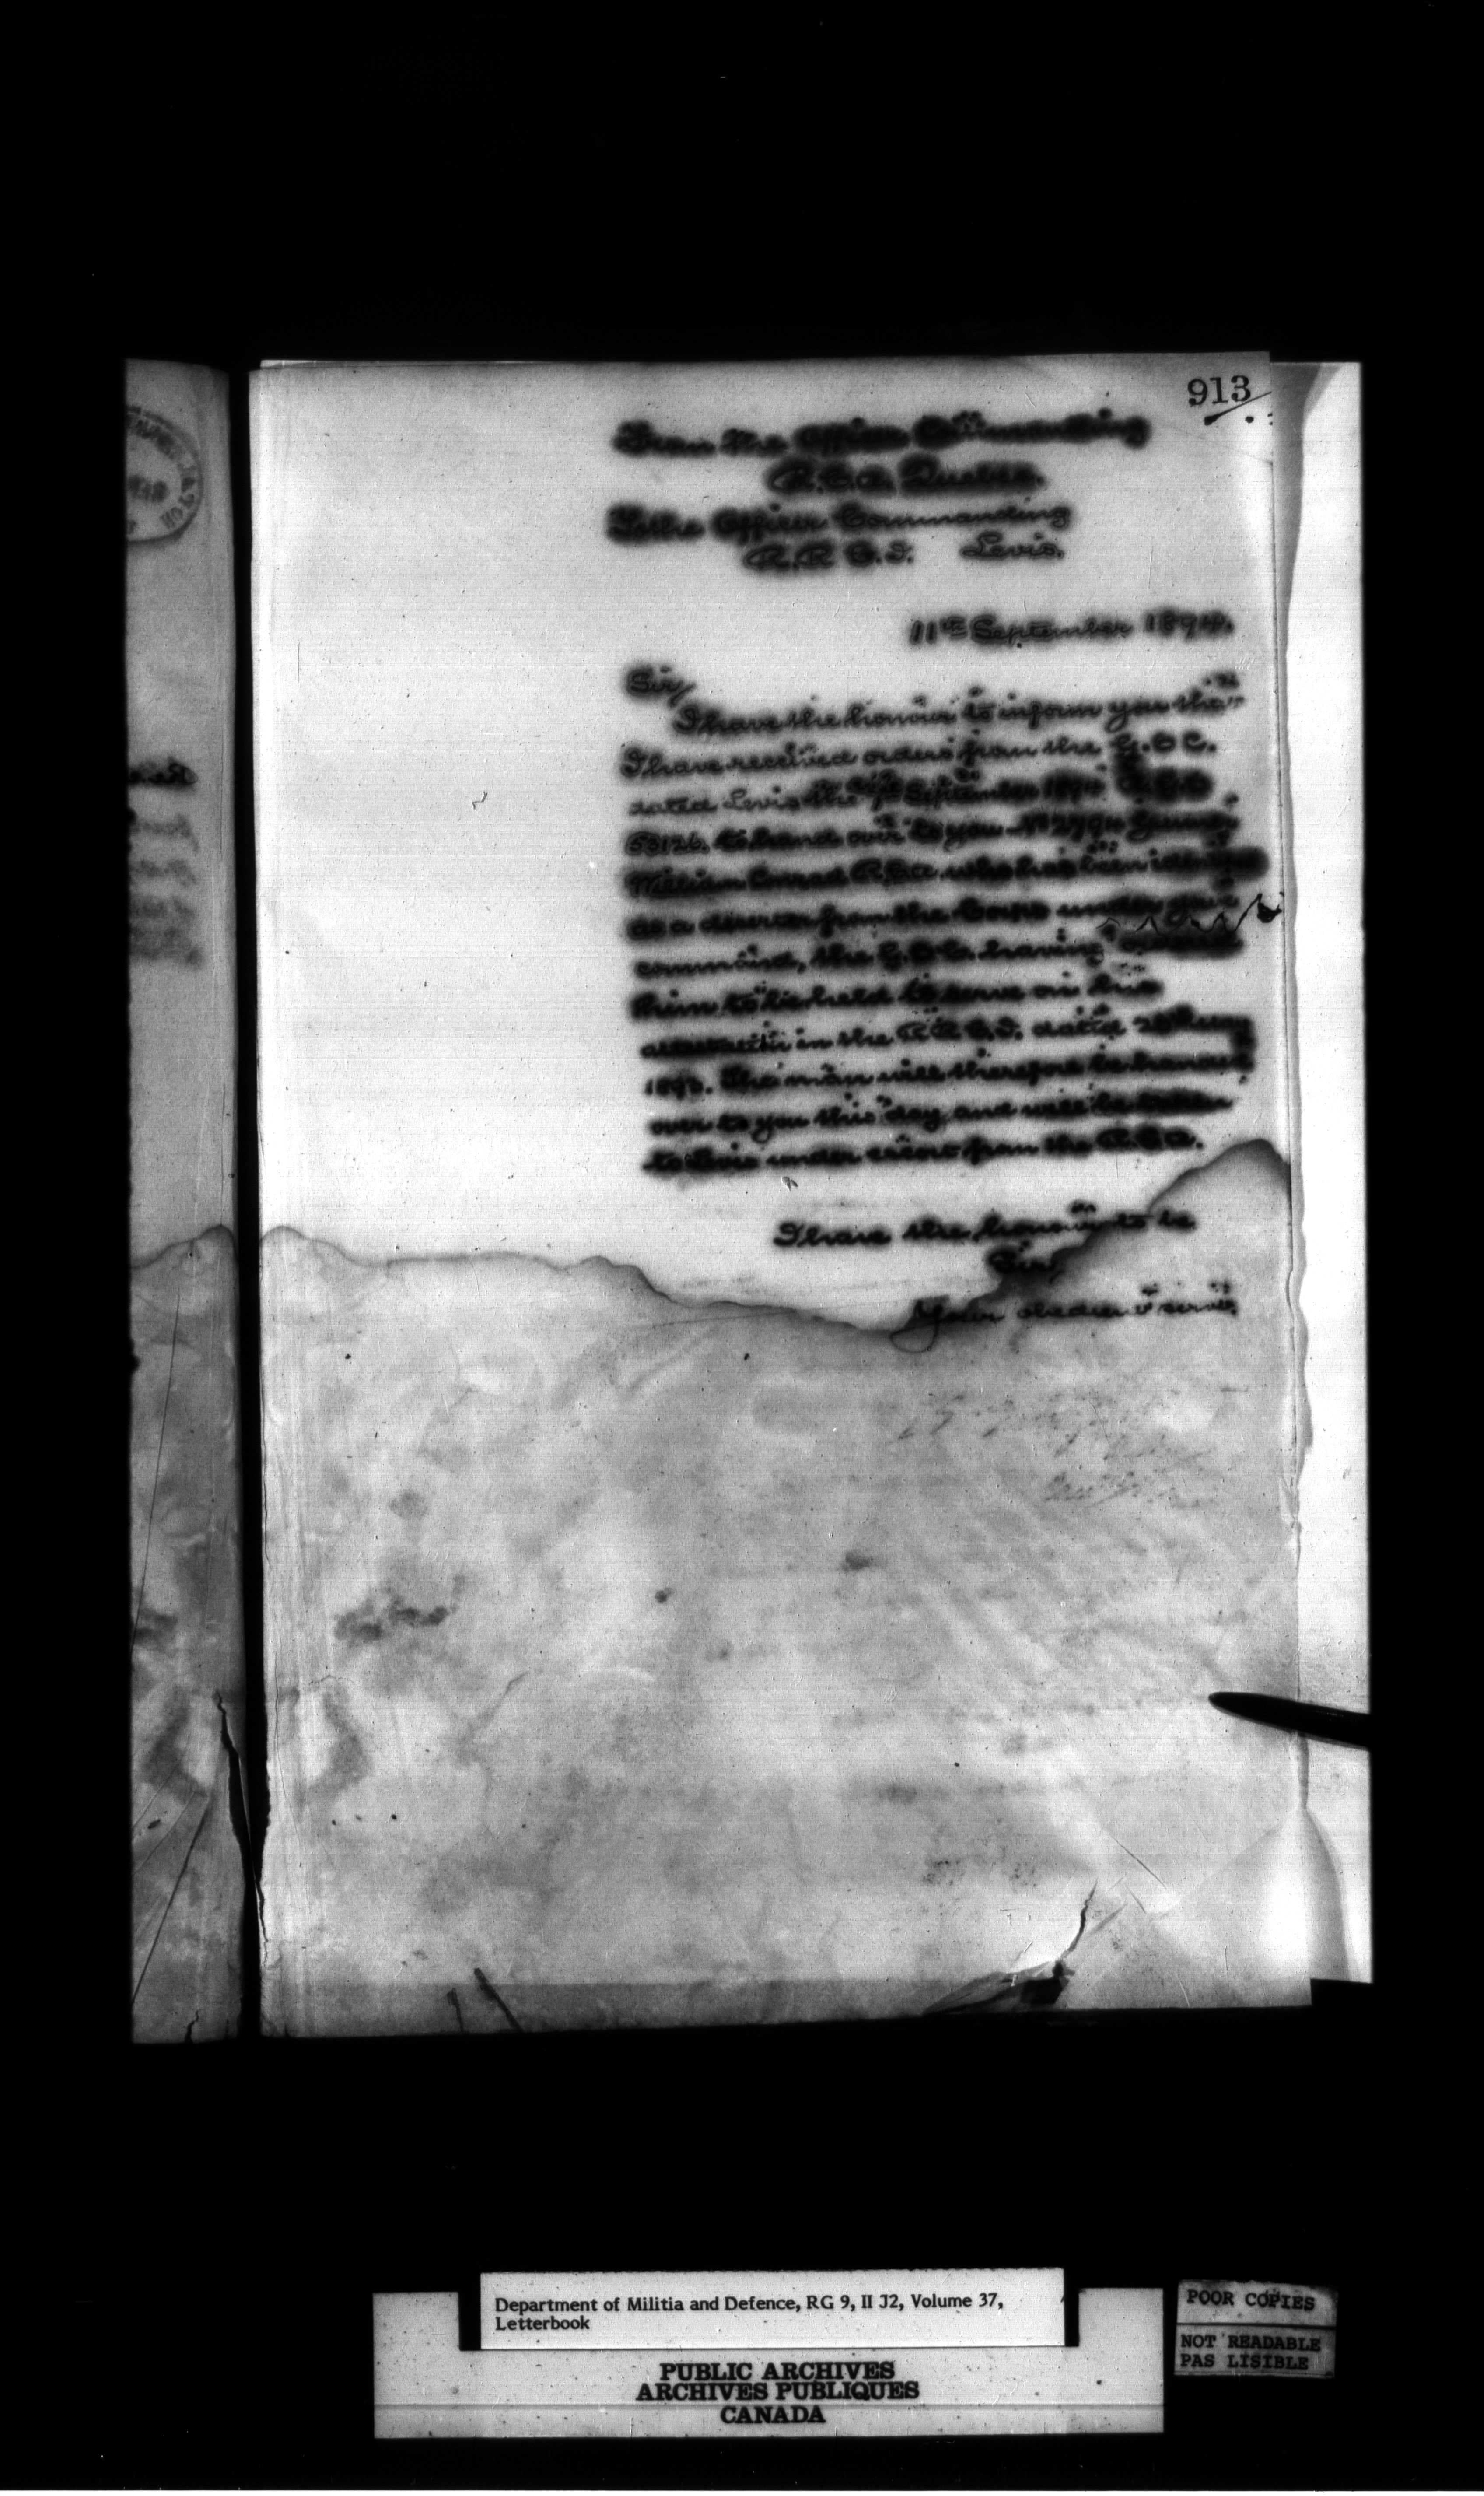 913
From the Officer Commanding
R.C.A. Quebec.
To the Officer Commanding
R.R.C.I. Levis.
11th September 1894.
Sir/
I have the honour to inform you that
I have received orders from the G.O.C.
dated Levis the September 1894
53126. to hand over to you No 2794 Gunner
William Conrad R.C.A. who has been
as a deserter from the Corps under your
command, the G.O.C. having ordered
him to be held to serve on his
attestation in the R.R.C.I. dated
1893. The man will therefore be handed
over to you this day and will be taken
to Levis under escort from the R.C.A.
I have the honour to be
Sir,
Your obedient servant
Department of Militia and Defence, RG 9, II J2, Volume 37,
Letterbook
PUBLIC ARCHIVES
ARCHIVES PUBLIQUES
CANADA
POOR COPIES
NOT READABLE
PAS LISIBLE